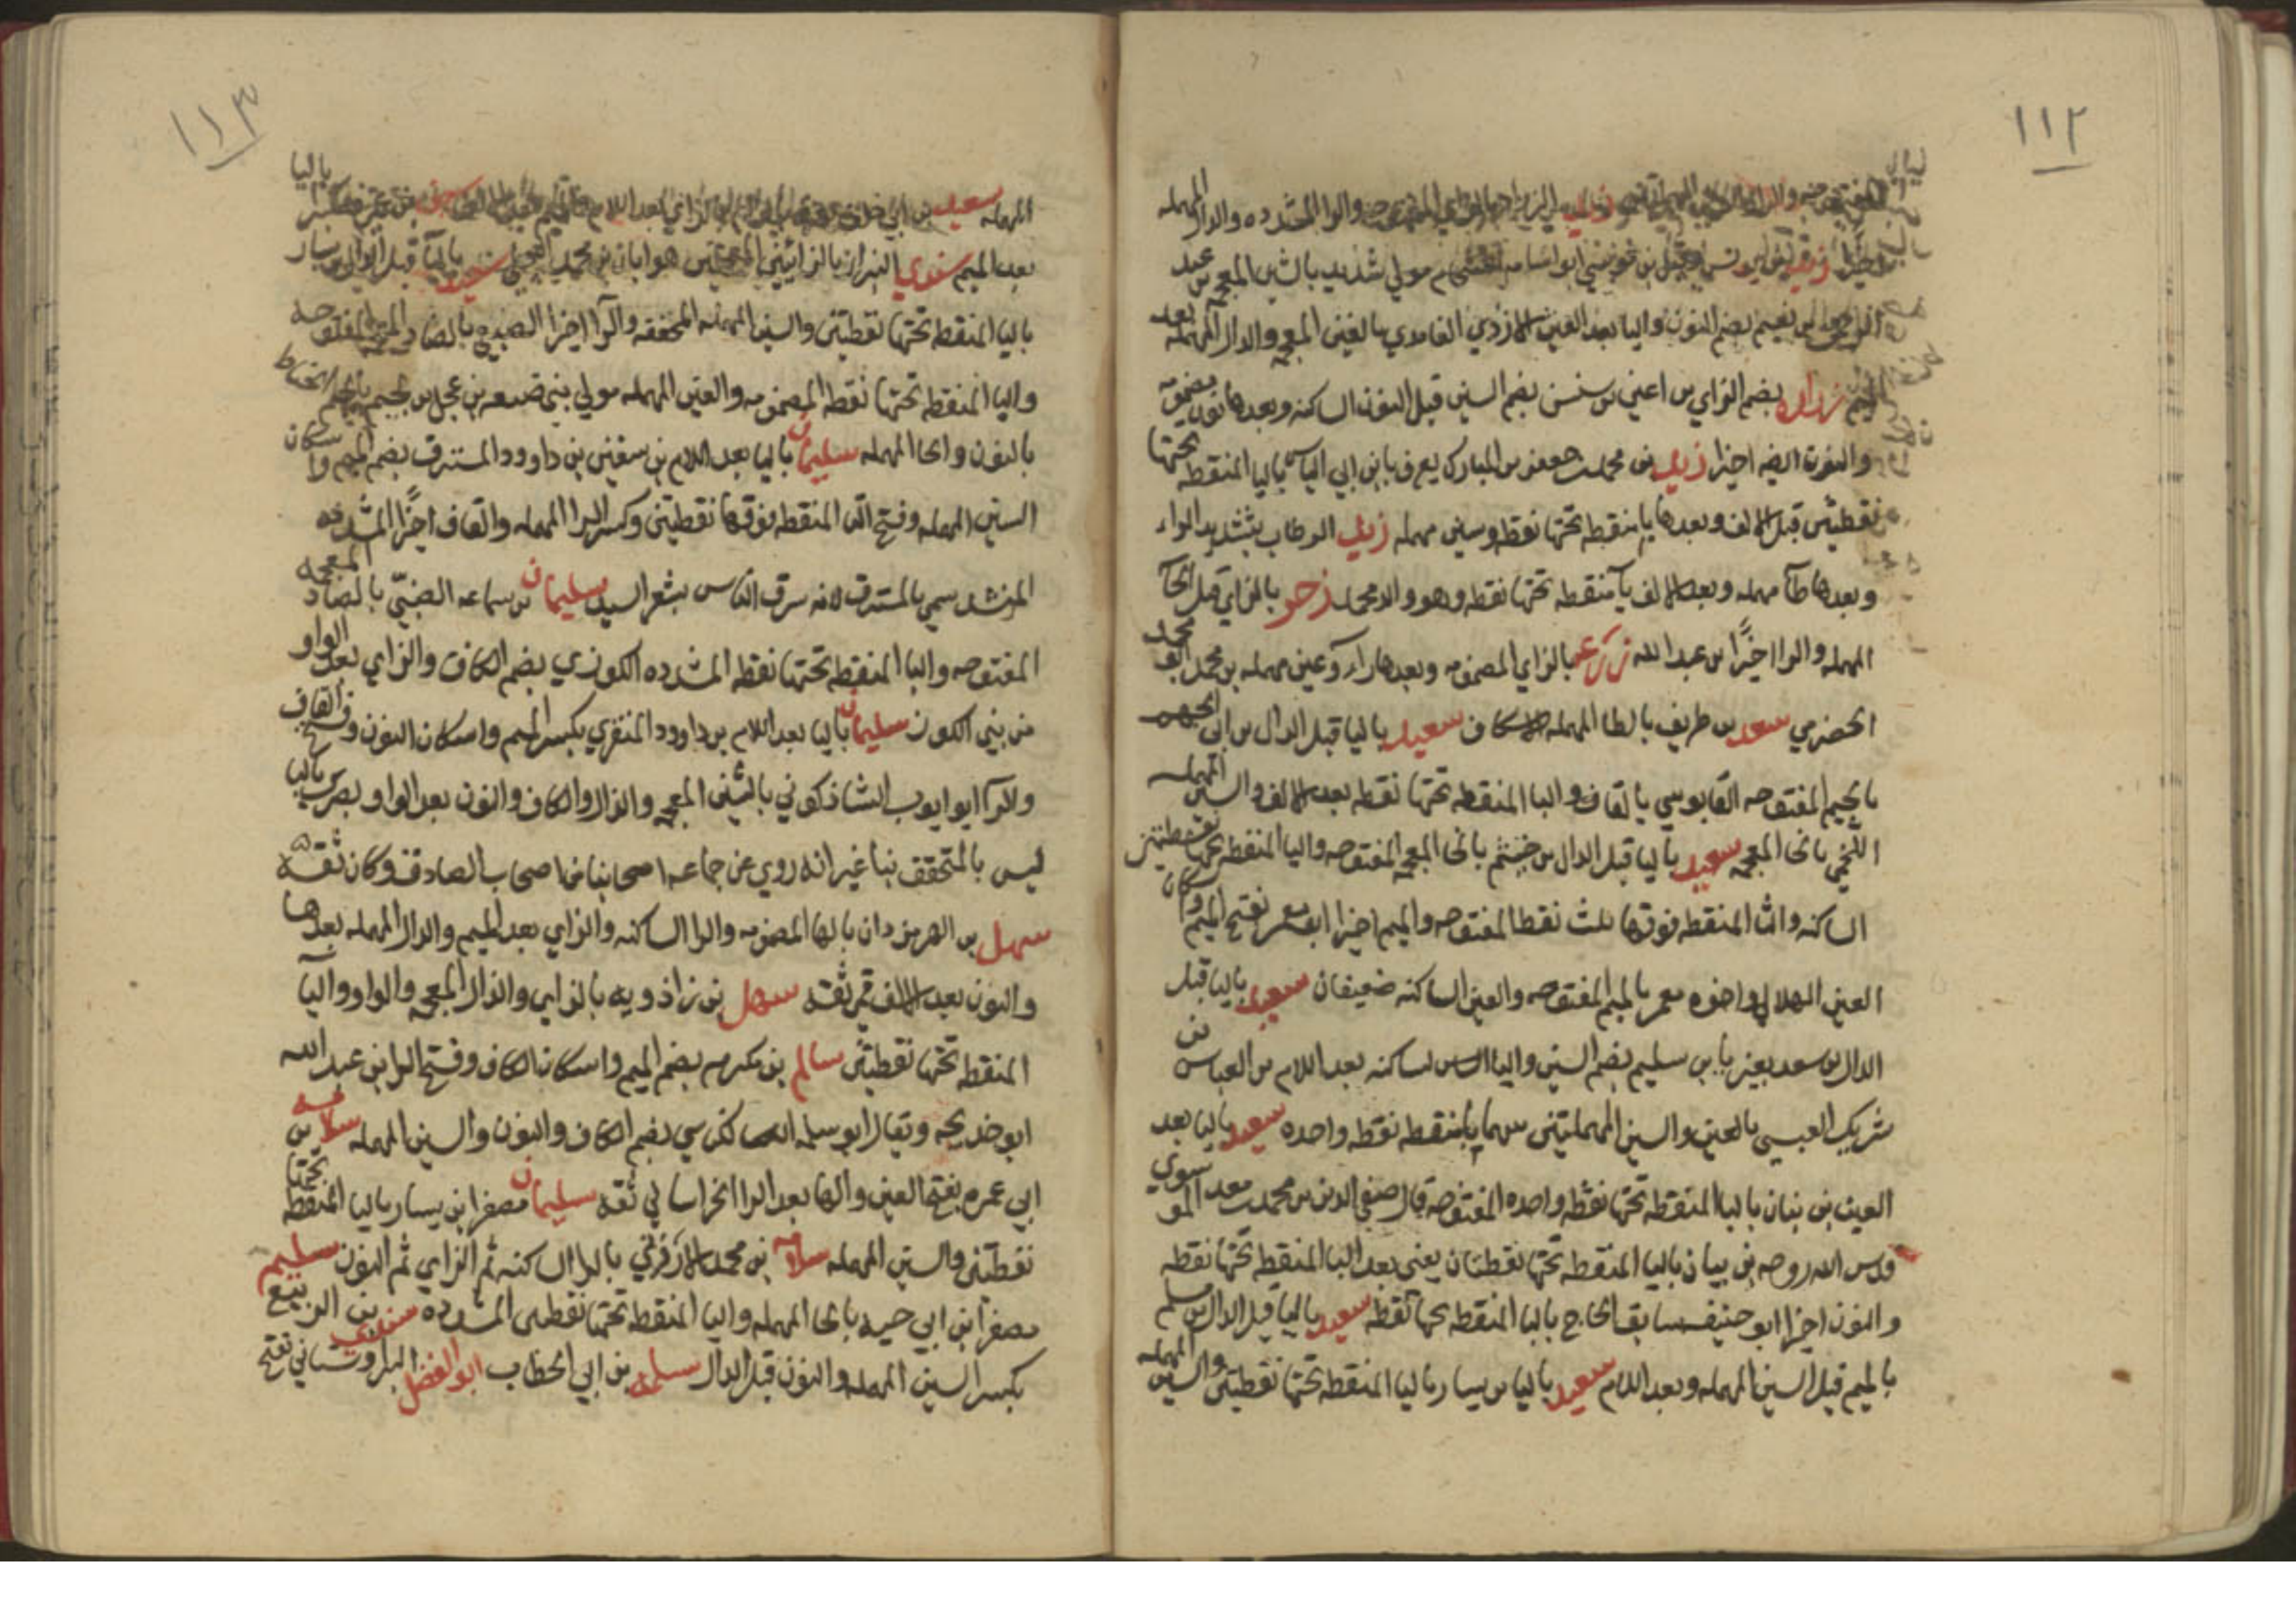 ١١٢
والراء المشدده والدال المهمله
مولي شديد بالشين المعجمه بن عبد
بن نعيم بضم النون واليا بعد العين الازدي الغامدي بالغين المعجمه والدال المهمله بعد
الميم زراره بضم الزاي بن اعين بن سنسن بضم السين قبل النون الساكنه وبعدها نون مضمومه
والنون ايضه اخيرا زيد بن محمد بن جعفر بن المبارك يعرف بابن ابي الياس باليا المنقطه تحتها
نقطتين قبل الالف وبعدها يا منقطه تحتها نقطه وسين مهمله زيد الرطاب بتشديد الراء
وبعدها طآ مهمله وبعد الالف يآ منقطه تحتها نقطه وهو والد محمد زحر بالزاي قبل الحآ
المهمله والرا اخيرًا بن عبد الله زرعه بالزاي المضمومه وبعدها راء وعين مهمله بن محمد ابو محمد
الحضرمي سعد بن طريف بالطا المهمله الاسكاف سعيد باليا قبل الدال بن ابي الجهم
بالجيم المفتوحه القابوسي بالقاف والبا المنقطه تحتها نقطه بعد الالف والسين المهمله
اللخمي بالخا المعجمه سعيد باليا قبل الدال بن خيثم بالخا المعجمه المفتوحه واليا المنقطه تحتها نقطتين
الساكنه والثا المنقطه فوقها ثلث نقط المفتوحه والميم اخيرا ابو معمر بفتح الميم واسكان
العين الهلالي واخوه معمر بالميم المفتوحه والعين الساكنه ضعيفان سعيد باليا قبل
الدال بن سعد بغير يا بن سليم بضم السين واليا الساكنه بعد اللام من العباس بن
شريك العبسي بالعين والسين المهملتين بينهما با منقطه نقطه واحده سعيد باليا بعد
العين بن بنان بالبا المنقطه تحتها نقطه واحده المفتوحه قال صفي الدين بن محمد بن معد الموسوي
قدس الله روحه بن بيان باليا المنقطه تحتها نقطتان يعني بعد البا المنقطه تحتها نقطه
والنون اخيرا ابو حنيفه سابق الحاج بالبا المنقطه تحتها نقطه سعيد باليا قبل الدال بن مسلم
بالميم قبل السين المهمله وبعد اللام سعيد باليا بن يسار باليا المنقطه تحتها نقطتين والسين المهمله
١١٣
المهمله سعيد بن ابي خلف
بعد الميم سندي البزاز بالزائين المعجمتين هو ابان بن محمد البجلي سعيد باليآ قبل الدال بن يسار
باليا المنقطه تحتها نقطتين والسين المهمله المخففه والرآ اخيرا الضبيعي بالضاد المعجمه المفتوحه
واليا المنقطه تحتها نقطه المضمومه والعين المهمله مولي بني ضبيعه بن عجل بن لجيم الحناط
بالنون والحا المهمله سليمان باليا بعد اللام بن سفين بن داوود المسترق بضم الميم واسكان
السين المهمله وفتح التا المنقطه فوقها نقطتين وكسر الرا المهمله والقاف اخيرًا المشدده
المنشد سمي بالمسترق لانه سرق الناس بشعر السيد سليمان بن سماعه الضبّي بالضاد المعجمه
المفتوحه والبا المنقطه تحتها نقطه المشدده الكوزي بضم الكاف والزاي بعد الواو
من بني الكوز سليمان باليا بعد اللام بن داوود المنقري بكسر الميم واسكان النون وفتح القاف
والرآ ابو ايوب الشاذكوني بالشين المعجمه والذال والكاف والنون بعد الواو بصري باليا
ليس بالمتحقق بنا غير انه روي عن جماعه اصحابنا من اصحاب الصادق وكان ثقه
سهل بن الهرمزدان بالها المضمومه والرا الساكنه والزاي بعد الميم والدال المهمله بعدها
والنون بعد الالف قمي ثقه سهل بن زاذويه بالزاي والذال المعجمه والواو واليآ
المنقطه تحتها نقطتين سالم بن مكرم بضم الميم واسكان الكاف وفتح الرا بن عبد الله
ابو خديجه ويقال ابو سلمه الكناسي بضم الكاف والنون والسين المهمله سلامه بن
ابي عمره بفتح العين والها بعد الرا الخراساني ثقه سليمان مصغرا بن يسار باليا المنقطه تحتها
نقطتين والسين المهمله سلامه بن محمد الارزني بالرا الساكنه ثم الزاي ثم النون سليم
مصغرا بن ابي حيه بالحا المهمله واليا المنقطه تحتها نقطتين المشدده سندي بن الربيع
بكسر السين المهمله والنون قبل الدال سلمه بن ابي الخطاب ابو الفضل البراوستاني بفتح